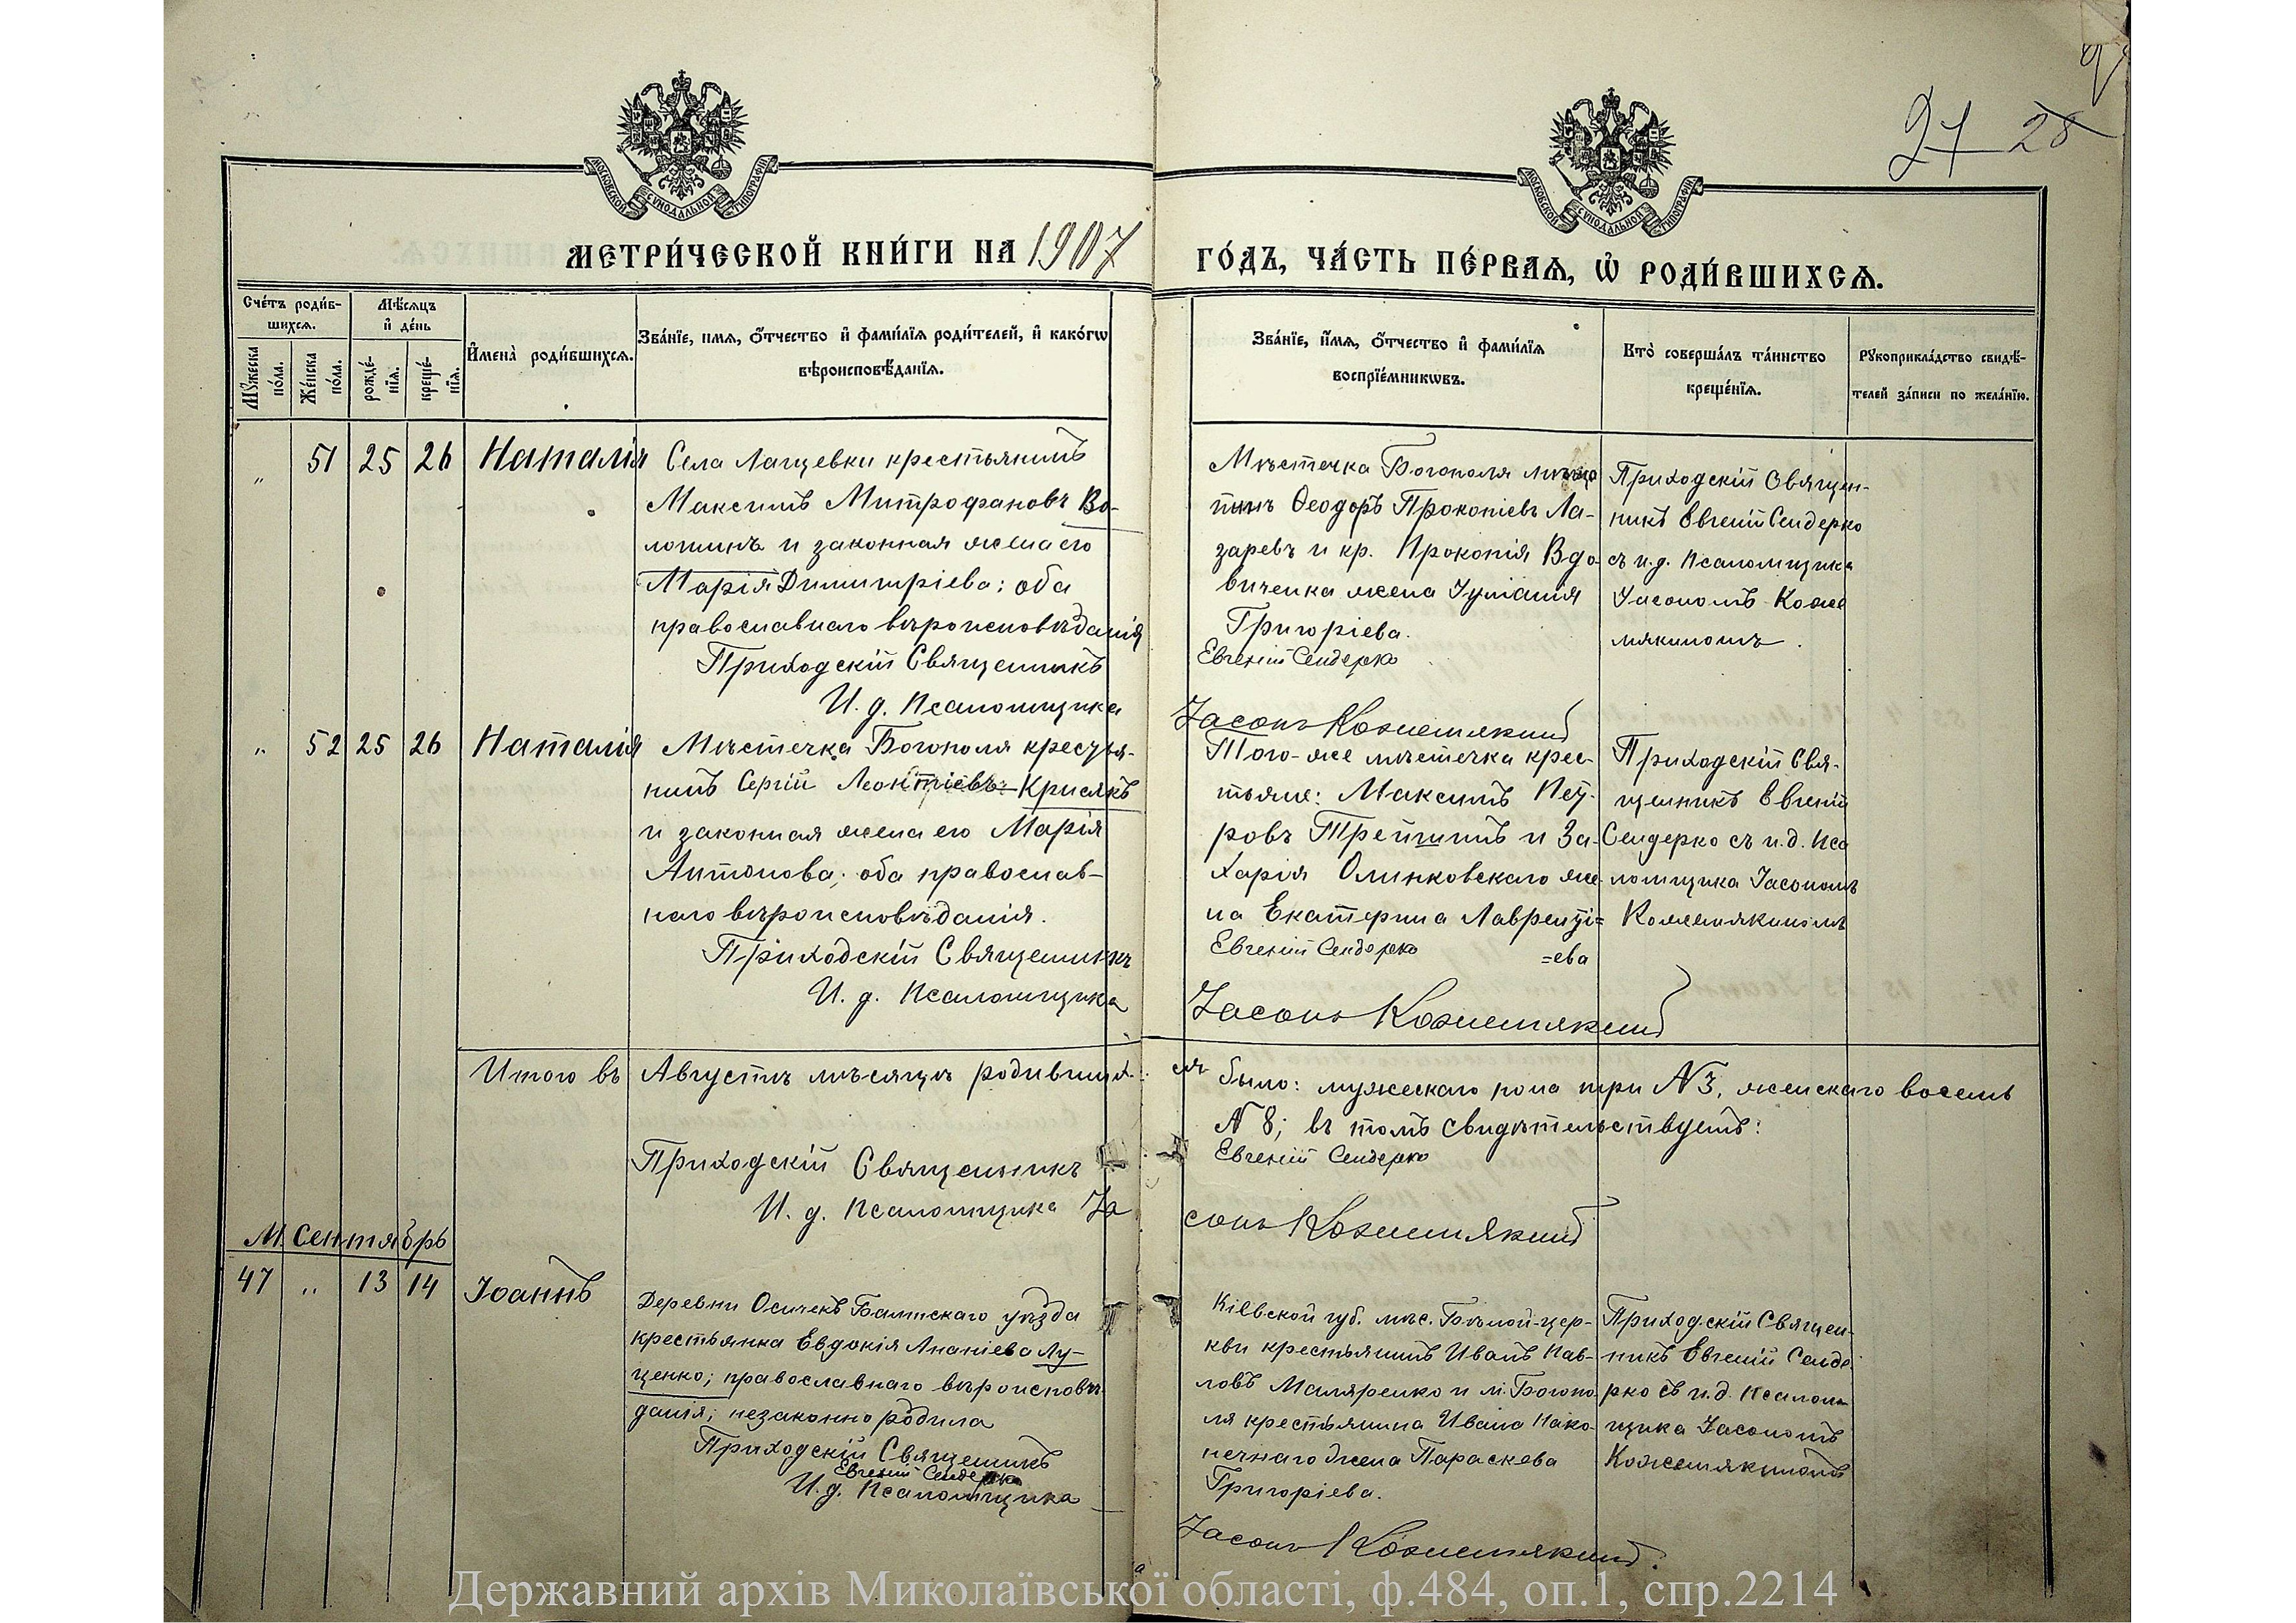 27 28
МОСКОВСКОЙ СѴНОДАЛЬНОЙ ТИПОГРАФІИ
МОСКОВСКОЙ СѴНОДАЛЬНОЙ ТИПОГРАФІИ
МЕТРИ́ЧЕСКОЙ КНИ́ГИ НА 1907
ГО́ДЪ, ЧА́СТЬ ПЕ́РВАѦ, Ѡ҆ РОДИ́ВШИХСѦ.
Сче́тъ роди́в-
шихсѧ.
Мꙋ́жеска
по́ла.
Же́нска
по́ла.
Мѣ́сѧцъ
и҆ де́нь
рожде́-
нїѧ.
креще́-
нїѧ.
И҆мена̀ роди́вшихсѧ.
Зва́нїе, и҆мѧ, ѻ҆́тчество и҆ фами́лїѧ роди́телей, и҆ како́гѡ
вѣроисповѣ́данїѧ.
Зва́нїе, и҆́мѧ, ѻ҆́тчество и҆ фами́лїѧ
воспрїе́мникѡвъ.
Кто̀ соверша́лъ та́инство
креще́нїѧ.
Рꙋкоприкла́дство свидѣ́-
телей за́писи по жела́нїю.
" 51 25 26 Наталія
Села Лащевки крестьянинъ
Максимъ Митрофановъ Во-
лошинъ и законная жена его
Марія Димитріева; оба
православнаго вѣроисповѣданія
Приходскій Священникъ
И. д. Псаломщика
Мѣстечка Богополя мѣща
нинъ Ѳеодоръ Прокопіевъ Ла-
заревъ и кр. Прокопія Вдо-
виченка жена Іуліанія
Григоріева.
Евгеній Сендерко
Іасонъ Кожемякинъ
Приходскій Священ-
никъ Евгеній Сендерко
съ и.д. Псаломщика
Іасономъ Коже
мякиномъ.
" 52 25 26 Наталія
Мѣстечка Богополя крестья-
нинъ Сергій Леонтіевъ Крисякъ
и законная жена его Марія
Антонова; оба православ-
наго вѣроисповѣданія.
Приходскій Священникъ
И. д. Псаломщика
Того-же мѣстечка крес-
тьяне: Максимъ Пет-
ровъ и За-
харія Олинковскаго же-
на Екатерина Лавренті=
=ева
Евгеній Сендерко
Іасонъ Кожемякинъ
Приходскій Свя-
щенникъ Евгеній
Сендерко съ и.д. Пса
ломщика Іасономъ
Кожемякиномъ
Итого въ Августѣ мѣсяцѣ родивших-
ся было: мужескаго пола три N3, женскаго восемь
N 8; въ томъ свидѣтельствуемъ:
Приходскій Священникъ
Евгеній Сендерко
И. д. Псаломщика Іа
сонъ Кожемякинъ
М. Сентябрь
47 " 13 14 Іоаннъ
Деревни Осичекъ Балтскаго уѣзда
крестьянка Евдокія Ананіева Лу-
ценко; православнаго вѣроисповѣ-
данія; незаконно родила
Приходскій Священникъ
Евгеній Сендерко
И. д. Псаломщика
Кіевской губ. мѣс. Бѣлой-цер-
кви крестьянинъ Иванъ Пав-
ловъ Маляренко и м. Богопо
ля крестьянина Ивана Нако-
нечнаго жена Параскева
Григоріева.
Іасонъ Кожемякинъ.
Приходскій Священ-
никъ Евгеній Сенде
рко съ и.д. Псалом
щика Іасономъ
Кожемякиномъ
Державний архів Миколаївської області, ф.484, оп.1, спр.2214